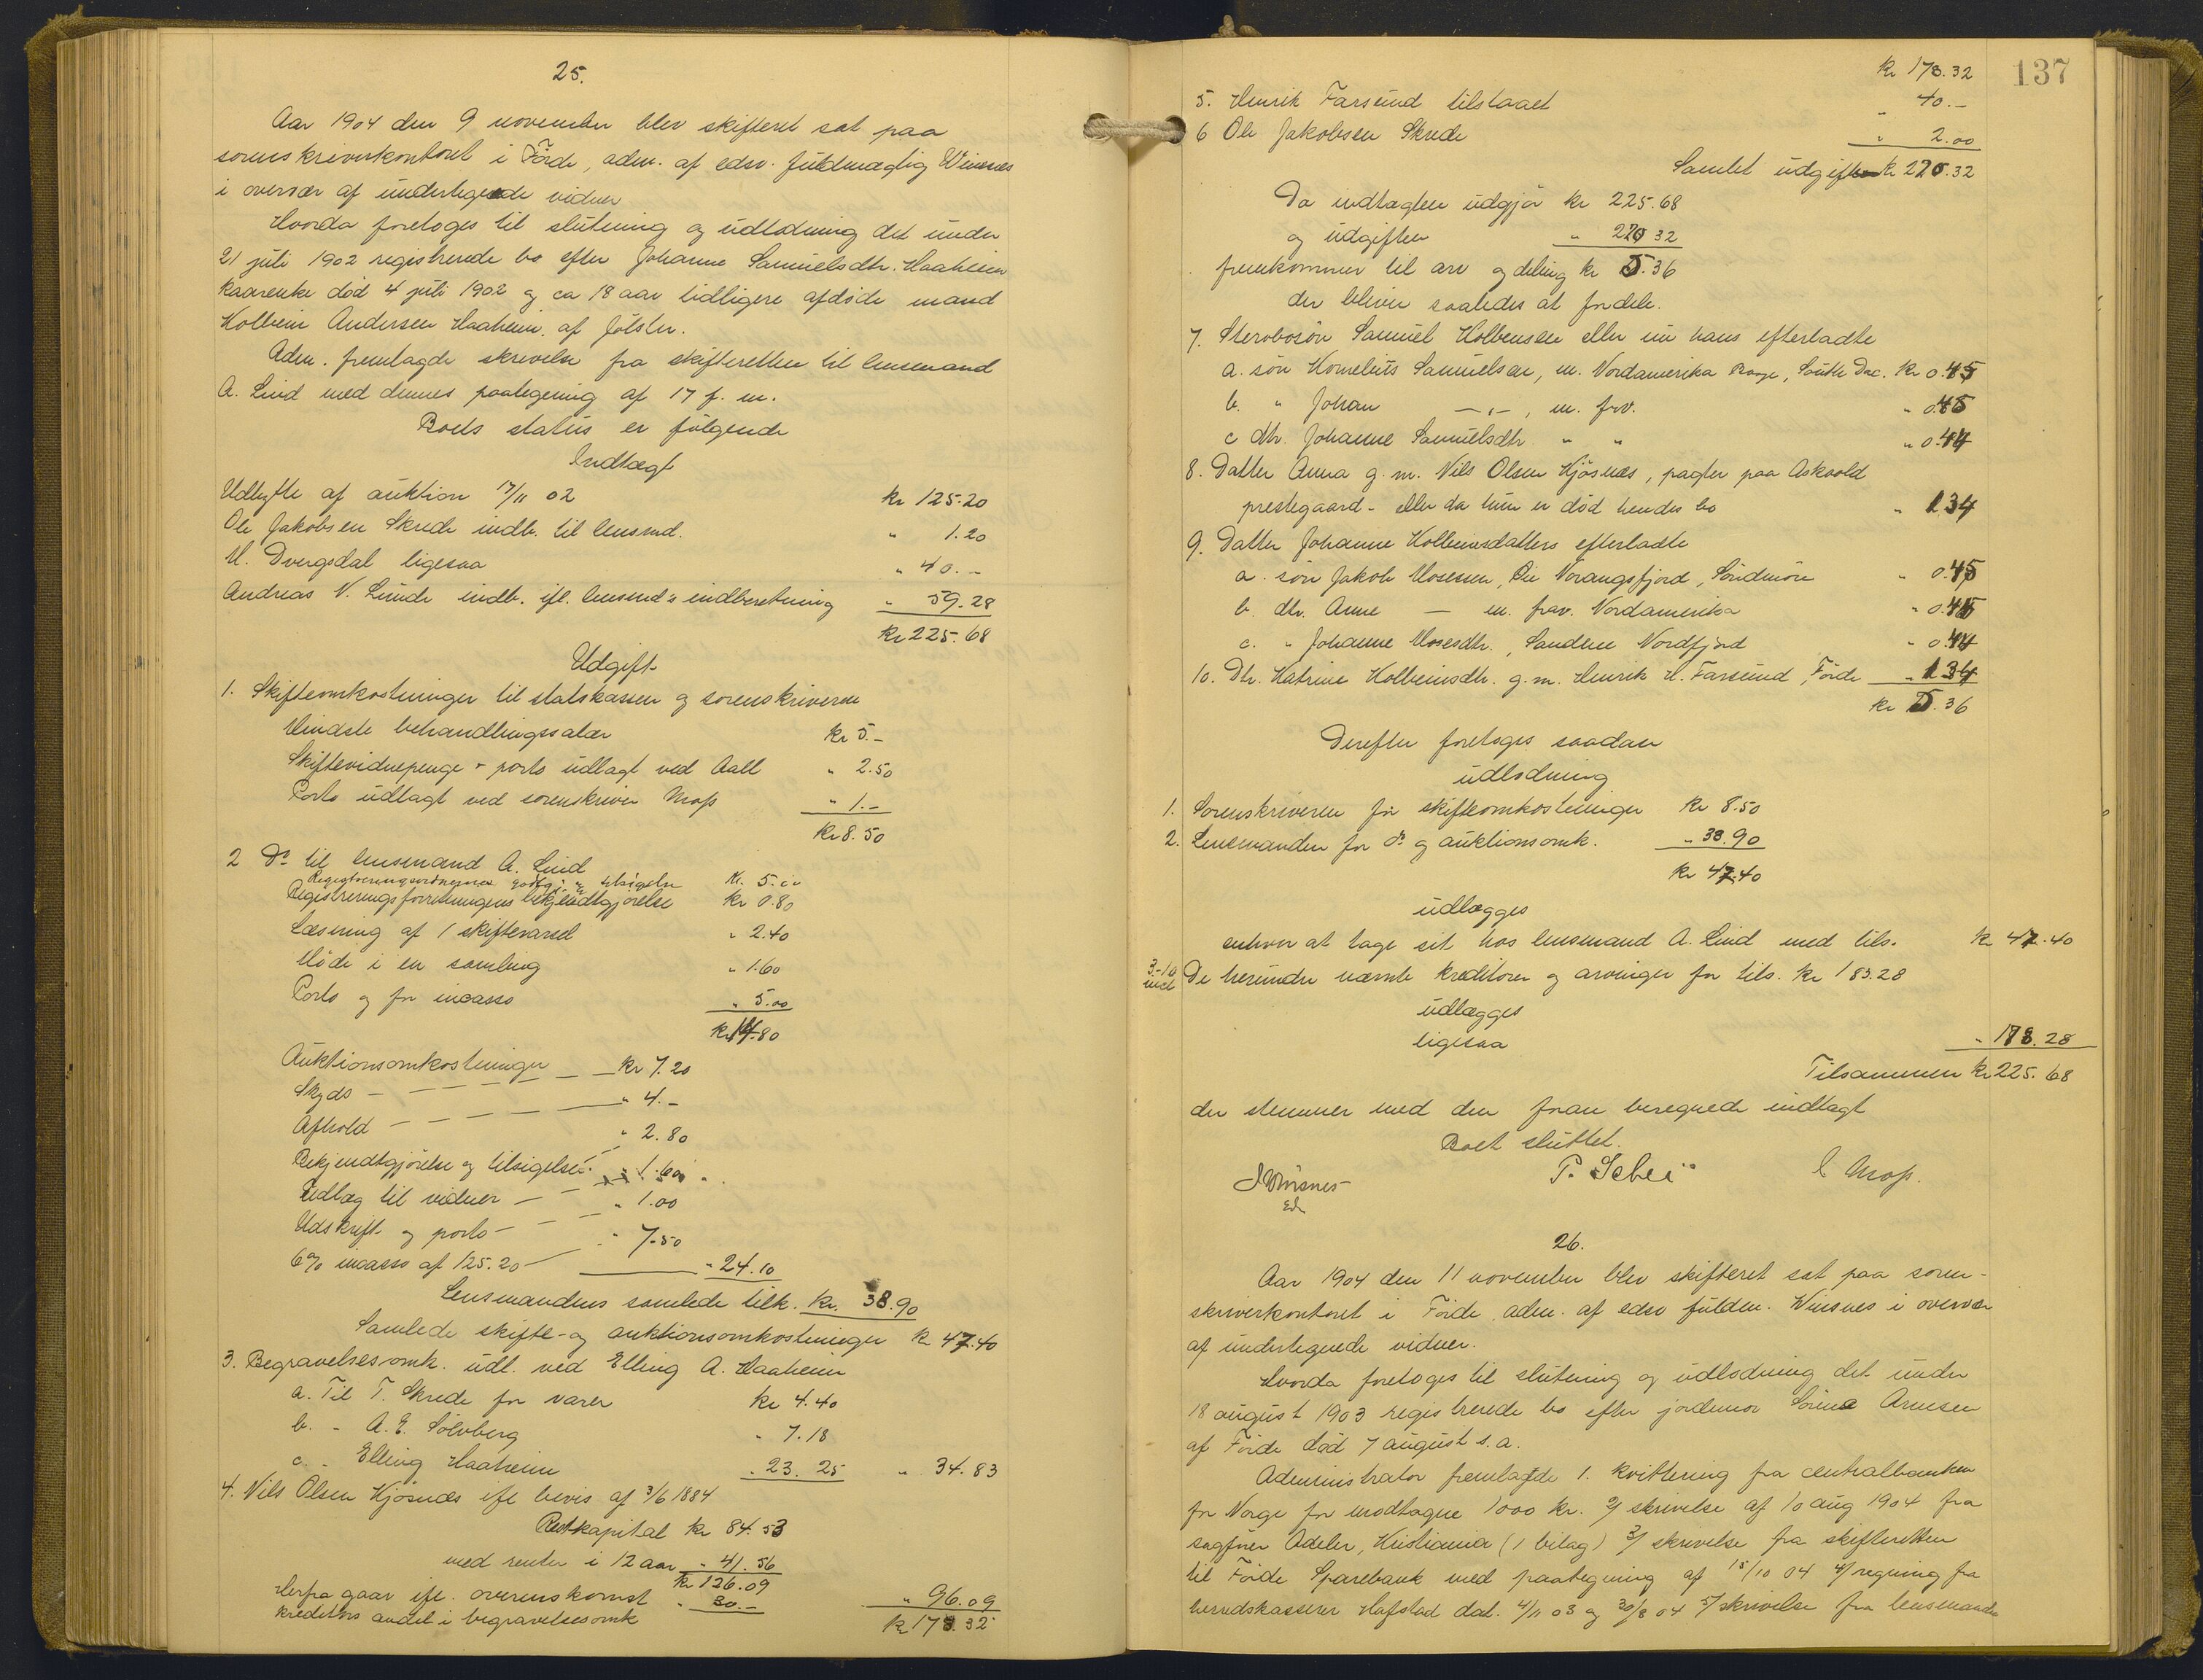 25.
Aar 1904 den 9 november blev skifteret sat paa
sorenskriverkontoret i Förde, adm. af edsv. fuldmægtig Winsnes
i overvær af undertegnede vidner
Hvorda foretoges til slutning og udlodning det under
21 juli 1902 registrerede bo efter Johanne Samuelsdtr. Haaheim
kaarenke död 4 juli 1902 og ca 18 aar tidligere afdöde mand
Kolbein Andersen Haaheim af Jölster.
Adm. fremlagde skrivelse fra skifteretten til lensmand
A. Lind med dennes paategning af 17 f. m.
Boets status er fölgende
Indtægt
Udbytte af auktion 17/11 02 kr 125.20
Ole Jakobsen Skrede indb. til lensmd. " 1.20
M. Dvergsdal ligesaa " 40.-
Andreas N. Lunde indb. ifl. lensmds indberetning " 59.28
kr 225.68
Udgift
1. Skifteomkostninger til statskassen og sorenskriveren
Mindste behandlingssalær kr 5.-
Skiftevidnepenge + porto udlagt ved Aall " 2.50
Porto udlagt ved sorenskriver Moss " 1.-
kr 8.50
2 Do til lensmand A. Lind
Registreringsvidnernes godtgj. & tilsigelse kr. 5.00
Registreringsforretningens bekjendtgjörelse kr 0.80
Læsning af 1 skiftevarsel " 2.40
Möde i en samling " 1.60
Porto og for incasso " 5.00
kr 14.80
Auktionsomkostninger kr 7.20
Skyds " 4.-
Afhold " 2.80
Bekjendtgjörelse og tilsigelse " 1.60
Udlæg til vidner " 1.00
Udskrift og porto " 7.50
6% incasso af 125.20 " 24.10
Lensmandens samlede tilk. kr. 38.90
Samlede skifte- og auktionsomkostninger kr 47.40
3. Begravelsesomk. udl. ved Elling A. Haaheim
a. Til T. Skrede for varer kr 4.40
b. " A. E. Sölvberg " 7.18
c. " Elling Haaheim " 23.25 " 34.83
4. Nils Olsen Hjösnæs ifl bevis af 3/6 1884
Restkapital kr 84.53
med renter i 12 aar " 41.56
kr 126.09
Herfra gaar ifl. overenskomst " 30.- " 96.09
kreditors andel i begravelsesomk kr 178.32
137
kr 178.32
5. Henrik Farsund tilstaaet " 40.-
6 Ole Jakobsen Skrede " 2.00
Samlet udgift kr 220.32
Da indtægten udgjör kr 225.68
og udgiften " 220.32
fremkommer til arv og deling kr 5.36
der bliver saaledes at fordele.
7. Sterbosön Samuel Kolbensen eller nu hans efterladte
a. sön Kornelius Samuelsen, m. Nordamerika, South Dac. kr 0.45
b. " Johan -"-, m. frv. " 0.45
c dtr. Johanne Samuelsdtr " " " 0.44
8. Datter Anna g. m. Nils Olsen Hjösnæs, pagter paa Askvold
prestegaard - eller da hun er död hendes bo " 1.34
9. Datter Johanne Kolbeinsdatters efterladte
a. sön Jakob Mosesen, Öie Norangsfjord, Söndmöre " 0.45
b. dtr. Anne — m. frav. Nordamerika " 0.45
c. " Johanne Mosesdtr., Sandene Nordfjord " 0.44
10. Dtr. Katrine Kolbeinsdtr. g. m. Henrik H. Farsund, Förde " 1.34
kr 5.36
Derefter foretoges saadan
udlodning
1. Sorenskriveren for skifteomkostninger kr 8.50
2. Lensmanden for do og auktionsomk. " 38.90
kr 47.40
udlægges
enhver at tage sit hos lensmand A. Lind med tils. kr 47.40
3-10 incl De herunder nævnte kreditorer og arvinger for tils. kr 183.28
udlægges
ligesaa " 178.28
Tilsammen kr 225.68
der stemmer med den foran beregnede indtægt
Boet sluttet.
Winsnes P. Schei C Moss.
Ed.
26.
Aar 1904 den 11 november blev skifteret sat paa soren-
skriverkontoret i Förde adm. af edsv fuldm. Winsnes i overvær
af undertegnede vidner.
Hvorda foretoges til slutning og udlodning det under
18 august 1903 registrerede bo efter jordemor Sörine Arnesen
af Förde död 7 august s. a.
Administrator fremlagde 1. kvittering fra centralbanken
for Norge for modtagne 1000 kr. 2/ skrivelse af 10 aug 1904 fra
sagförer Adeler, Kristiania (1 bilag) 3/ skrivelse fra skifteretten
til Förde Sparebank med paategning af 15/10 04 4/ regning fra
herredskasserer Hafstad dat. 4/11 03 og 30/8 04 5/ skrivelse fra lensmanden